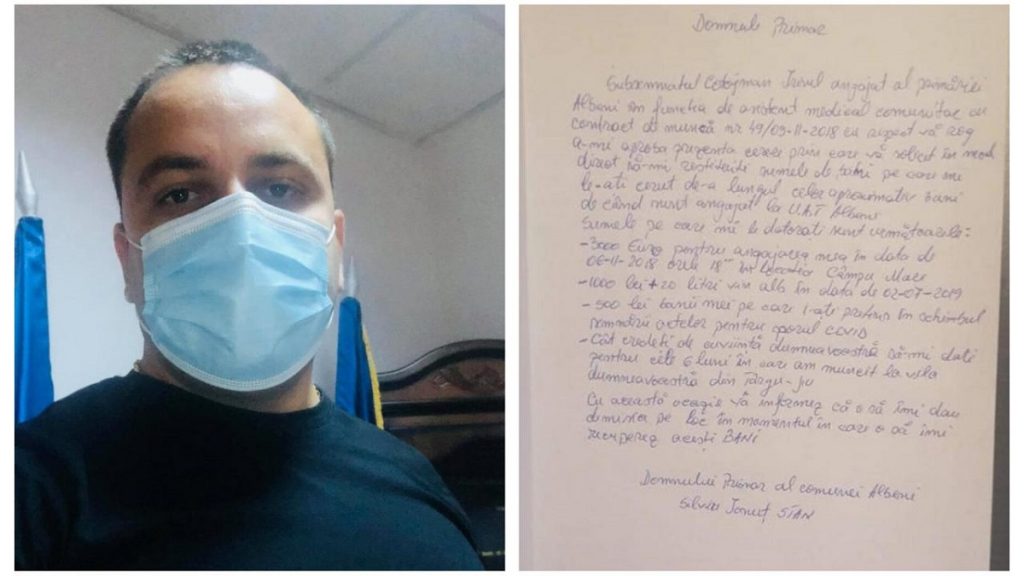 Domnule Primar
Subsemnatul Cotojman Irinel angajat al primăriei
Albeni în funcția de asistent medical comunitar cu
contract de muncă nr 49/09-11-2018 cu respect vă rog
a-mi aproba prezenta cerere prin care vă solicit în mod
direct să-mi restituiți sumele de bani pe care mi
le-ați cerut de-a lungul celor aproximativ 2 ani
de când sunt angajat la U.A.T Albeni
Sumele pe care mi le datorați sunt următoarele:
-3000 Euro pentru angajarea mea în data de
06-11-2018 orele 18 în locația Câmpu Mare
-1000 lei + 20 litri vin alb în data de 02-07-2019
- 500 lei banii mei pe care i-ați pretins în schimbul
semnării actelor pentru sporul COVID
- Cât credeți de cuviință dumneavoastră să-mi dați
pentru cele 6 luni în care am muncit la vila
dumneavoastră din Târgu-Jiu
Cu această ocazie vă informez că o să îmi dau
demisia pe loc în momentul în care o să îmi
recuperez acești BANI
Domnului Primar al comunei Albeni
Silviu Ionuț STAN